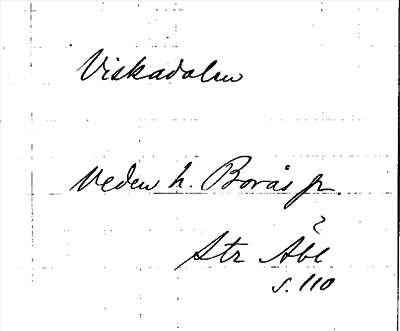 Viskadalen
Veden h. Borås fr.
Str Äbl
s. 110